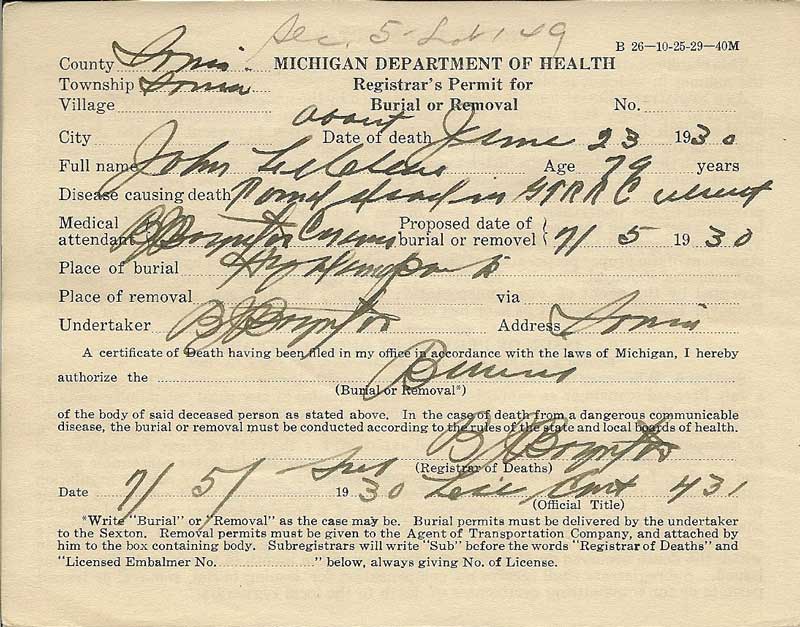 Sec. 5 Lot 149
B 26—10-25-29—40M
County Ionia
MICHIGAN DEPARTMENT OF HEALTH
Township Ionia
Registrar's Permit for
Village
Burial or Removal
No.
City
about
Date of death June 23 1930
Full name John
Age 79 years
Disease causing death Found dead in G T R R C
Medical
attendant B J Boynton
Proposed date of
burial or removel 7/ 5 1930
Place of burial Highland Park
Place of removal
via
Undertaker B J Boynton
Address Ionia
A certificate of Death having been filed in my office in accordance with the laws of Michigan, I hereby
authorize the
(Burial or Removal*)
of the body of said deceased person as stated above. In the case of death from a dangerous communicable
disease, the burial or removal must be conducted according to the rules of the state and local boards of health.
B J Boynton
Sub
(Registrar of Deaths)
Date 7/ 5/ 1930
431
(Official Title)
*Write "Burial" or "Removal" as the case may be. Burial permits must be delivered by the undertaker
to the Sexton. Removal permits must be given to the Agent of Transportation Company, and attached by
him to the box containing body. Subregistrars will write "Sub" before the words "Registrar of Deaths" and
"Licensed Embalmer No. " below, always giving No. of License.